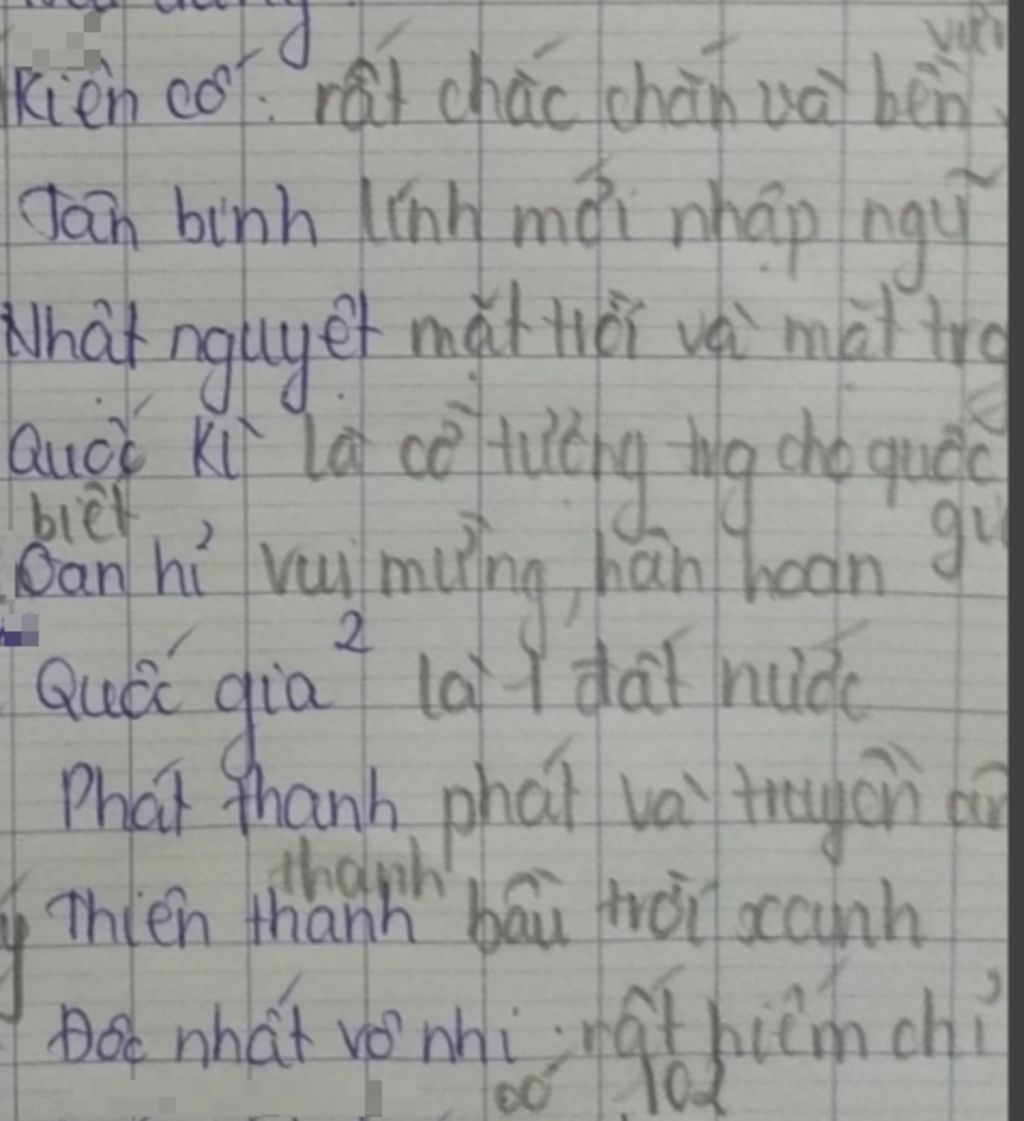 vưn
Kiên cố: rất chắc chắn và bền
Tân binh lính mới nhập ngũ
Nhật nguyệt mặt trời và mặt tră
Quốc kì là cờ tượng trg cho quốc
biệt
Oan hỉ vui mừng, hân hoan
Quốc gia 2 là 1 đất nước
Phát thanh phát và truyền âm
thanh
Thiên thanh bầu trời xanh
Độc nhất vô nhị: rất hiếm chỉ
có 102